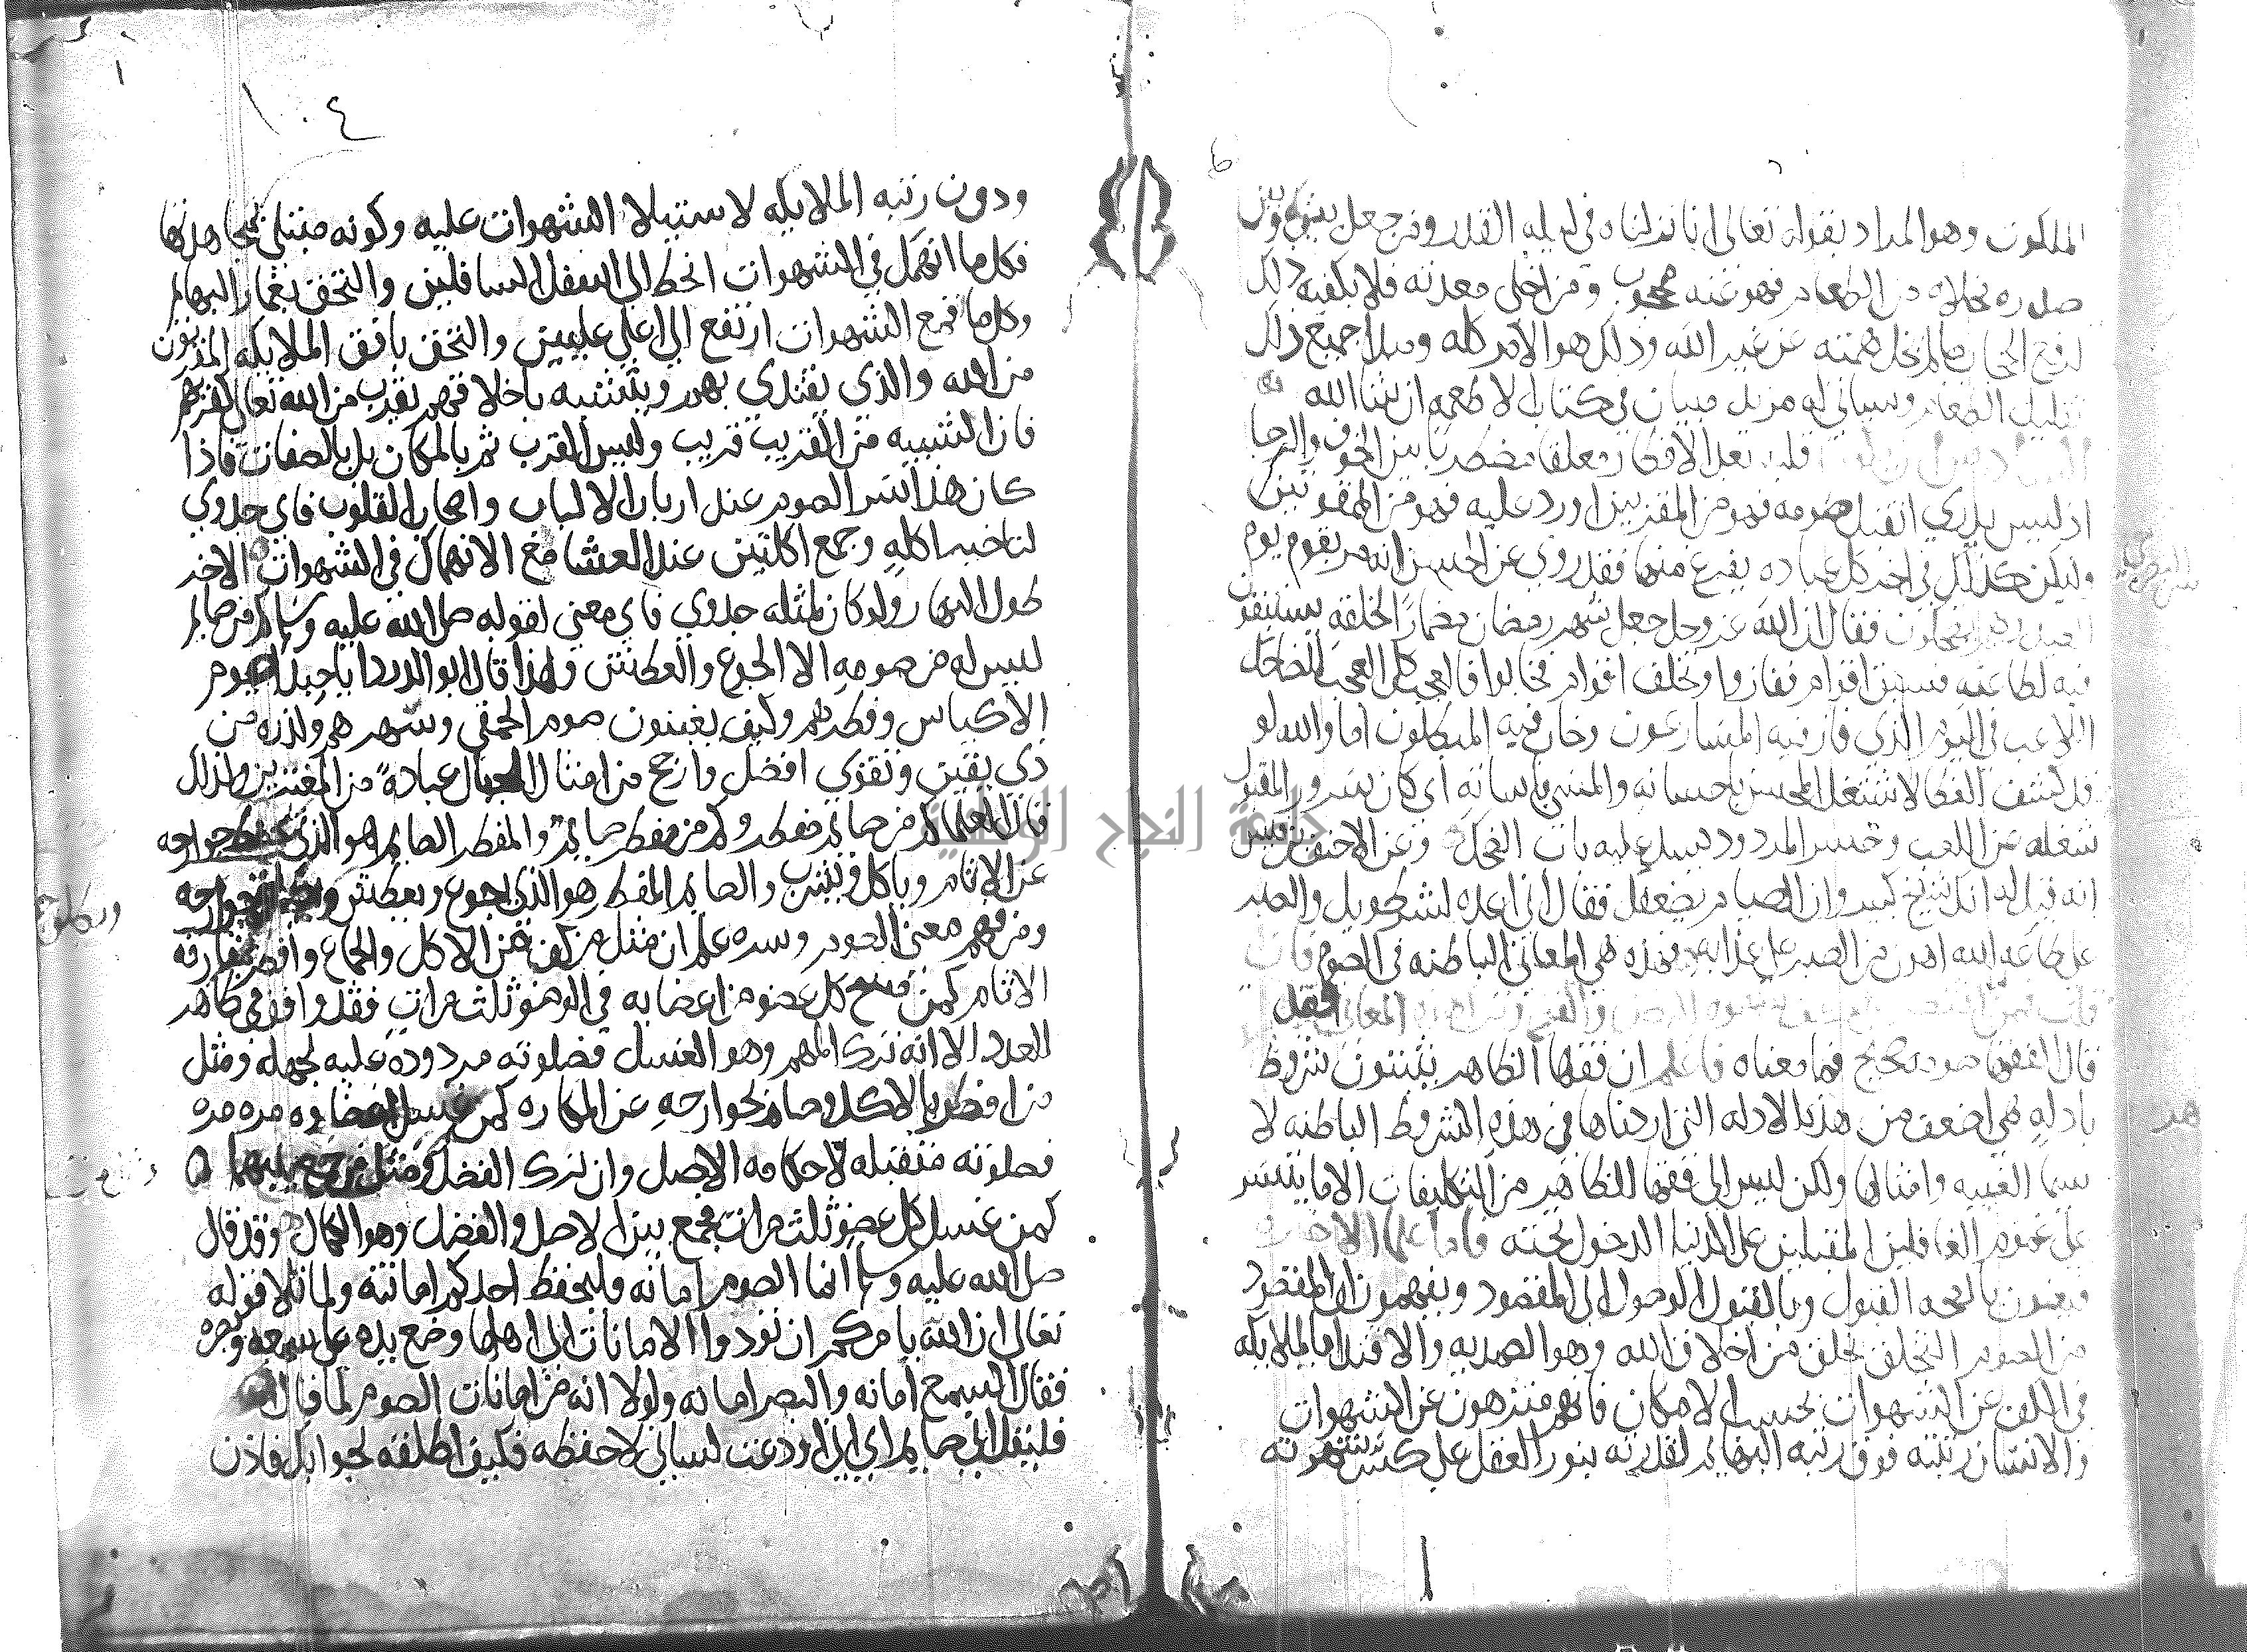 الملكوت وهو المراد بقوله تعالى انا انزلناه في ليله القدر ومن جعل بين قلبه وبين
صدره مخلاه من الطعام فهو عنه محجوب ومن اخلى معدته فلا يكفيه ذلك
لرفع الحجاب ما لم يخل همته عن غير الله وذلك هو الامر كله ومبدا جميع ذلك
تقليل الطعام وسياتي له مزيد بيان في كتاب الاطعمه ان شا الله
قلبه بعد الافطار معلقا مضطربا بين الخوف والرجا
اذ ليس يدري اتقبل صومه فهو من المقربين او رد عليه فهو من الممقوتين
وليكن كذلك في اخر كل عباده يفرغ منها فقد روي عن الحسن انه مر بقوم يوم
العيد وهم يضحكون فقال ان الله عز وجل جعل شهر رمضان مضمار الخلقه يستبقون
فيه لطاعته فسبق اقوام ففازوا وتخلف اقوام فخابوا فالعجب كل العجب للضاحك
اللاعب في اليوم الذي فاز فيه المسارعون وخاب فيه المبطلون اما والله لو
قد كشف الغطا لاشتغل المحسن باحسانه والمسي باساته اي كان سرور المقبول
شغله عن اللعب وخسر المردود يسد عليه باب الضحك وعن الاحنف بن قيس
انه قيل له انك شيخ كبير وان الصيام يضعفك فقال اني اعده لشر طويل والصبر
على طاعه الله اهون من الصبر على عذابه فهذه هي المعاني الباطنه في الصوم فان
قلت فمن اقتصر على كف شهوه البطن والفرج وترك هذه المعاني فقد
قال الفقها صومه صحيح فما معناه فاعلم ان فقها الظاهر يثبتون شروط
بادله هي اضعف من هذه الادله التي اردناها في هذه الشروط الباطنه لا
سيما الغيبه وامثالها ولكن ليس الى فقها الظاهر من التكليفات الا ما يتيسر
على عموم الغافلين المقبلين على الدنيا الدخول تحته فاما علما الاخره
فيعنون بالصحه القبول وبالقبول الوصول الى المقصود ويفهمون ان المقصود
من الصوم التخلق بخلق من اخلاق الله وهو الصمديه والاقتدا بالملايكه
في الكف عن الشهوات بحسب الامكان فانهم منزهون عن الشهوات
والانسان رتبته فوق رتبه البهايم لقدرته بنور العقل على كسر شهوته
١٠٤
ودون رتبه الملايكه لاستيلا الشهوات عليه وكونه مبتلى بمجاهدتها
فكل ما انهمك في الشهوات انحط الى اسفل السافلين والتحق بغمار البهايم
وكل ما قمع الشهوات ارتفع الى اعلى عليين والتحق بافق الملايكه المقربون
من الله والذي يقتدي بهم ويتشبه باخلاقهم يقرب من الله تعالى كقربهم
فان الشبيه من القريب قريب وليس القرب ثم بالمكان بل بالصفات فاذا
كان هذا سر الصوم عند ارباب الالباب واصحاب القلوب فاي جدوي
لتاخير اكله وجمع اكلتين عند العشا مع الانهماك في الشهوات الاخر
طول النهار ولو كان لمثله جدوي فاي معني لقوله صلى الله عليه وسلم كم من صايم
ليس له من صومه الا الجوع والعطش ولهذا قال ابو الدردا يا حبذا نوم
الاكياس وفطرهم وكيف يغبنون صوم الحمقى وسهرهم ولذره من
ذي يقين وتقوي افضل وارجح من امثال الجبال عباده من المغترين ولذلك
قال العلما كم من صايم مفطر وكم من مفطر صايم والمفطر الصايم هو الذي يحفظ جوارحه
عن الاثام وياكل ويشرب والصايم المفطر هو الذي يجوع ويعطش ويطلق جوارحه
ومن فهم معنى الصوم وسره علم ان مثل من كف عن الاكل والجماع وافطر بمقارفه
الاثام كمن مسح كل عضو من اعضايه في الوضو ثلث مرات فقد وافق في ظاهر
العدد الا انه ترك المهم وهو الغسل فصلوته مردوده عليه لجهله ومثل
من افطر بالاكل وصام بجوارحه عن المكاره كمن غسل اعضاوه مره مره
فصلوته متقبله لاحكامه الاصل وان ترك الفضل ومثل من جمع بينهما
كمن غسل كل عضو ثلث مرات فجمع بين الاصل والفضل وهو الكمال وقد قال
صلى الله عليه وسلم انما الصوم امانه فليحفظ احدكم امانته ولما تلا قوله
تعالى ان الله يامركم ان تودوا الامانات الى اهلها وضع يده على سمعه وبصره
فقال السمع امانه والبصر امانه ولولا انه من امانات الصوم لما قال
فليقل اني صايم اي اني اودعت لساني لاحفظه فكيف اطلقه لجوابك فاذن
جامعة النجاح الوطنية